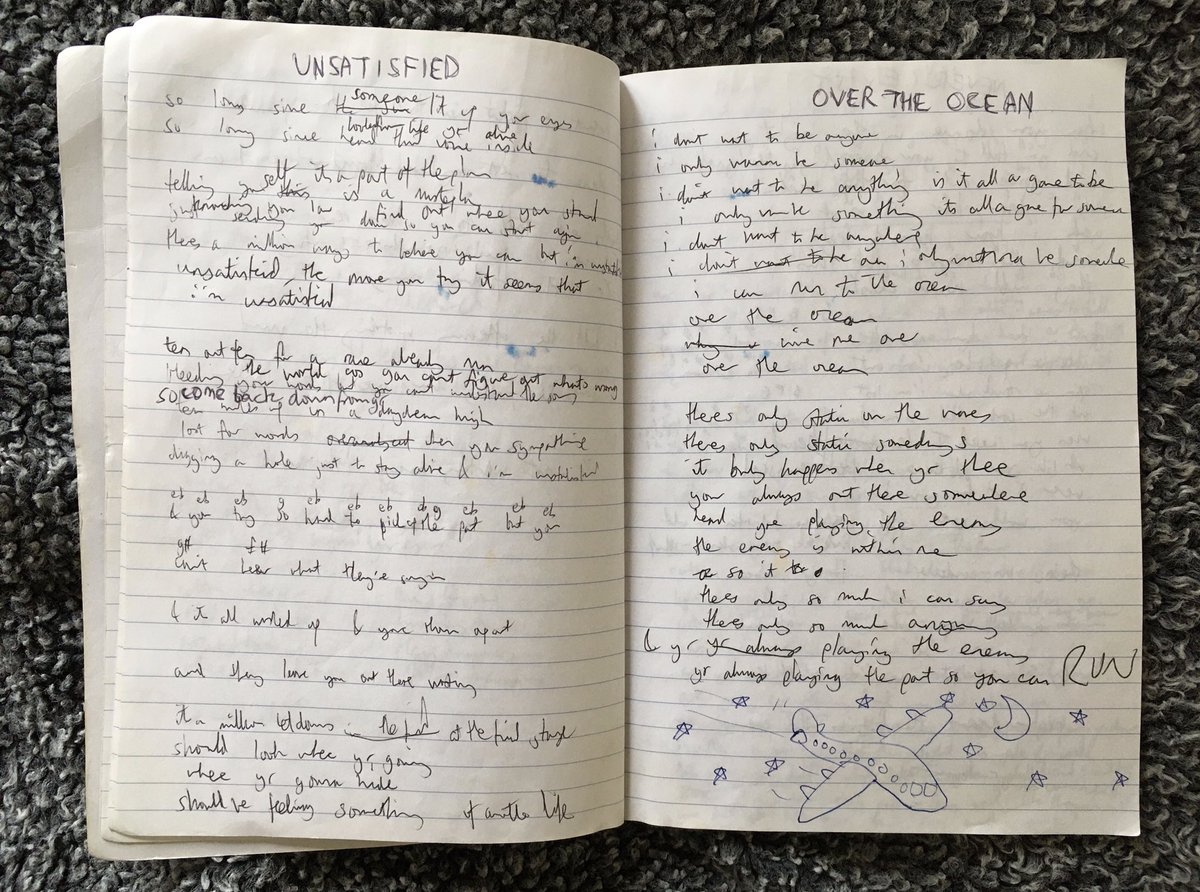 UNSATISFIED
so long since someone lit up your eyes
so long since life yr alive
inside
telling yourself its a part of the plan
is a
find out where you stand
so you can start again
theres a million ways to believe you can but i'm
unsatisfied, the more you try it seems that
i'm unsatisfied
ten out ten for a race already run
the world go you cant figure out whats wrong
your words but you cant understand the
so come back down from
ten miles up in a daydream high
lost for words when you sympathise
digging a hole just to stay alive & i'm unsatisfied
eb eb eb g eb eb eb g eb eb
& you try so hard to pick up the part but you
g# f#
can't hear what they're saying
& it all worked up & youre thrown apart
and they leave you out there waiting
at the final stage
should look where yr going
where yr gonna hide
should've feeling something of another life
OVER THE OCEAN
i dont want to be anyone
i only wanna be someone
i don't want to be anything is it all a game to be
i only something its all a game for someone
i dont want to be anywhere
i dont want to be i only be somewhere
i can run to the ocean
over the ocean
me over
over the ocean
theres only static on the waves
theres only static somedays
it only happens when yr there
your always out there somewhere
head your playing the enemy
the enemy is within me
or so it
theres only so much i can say
theres only so much
& yr yr always playing the enemy
yr always playing the part so you can RUN